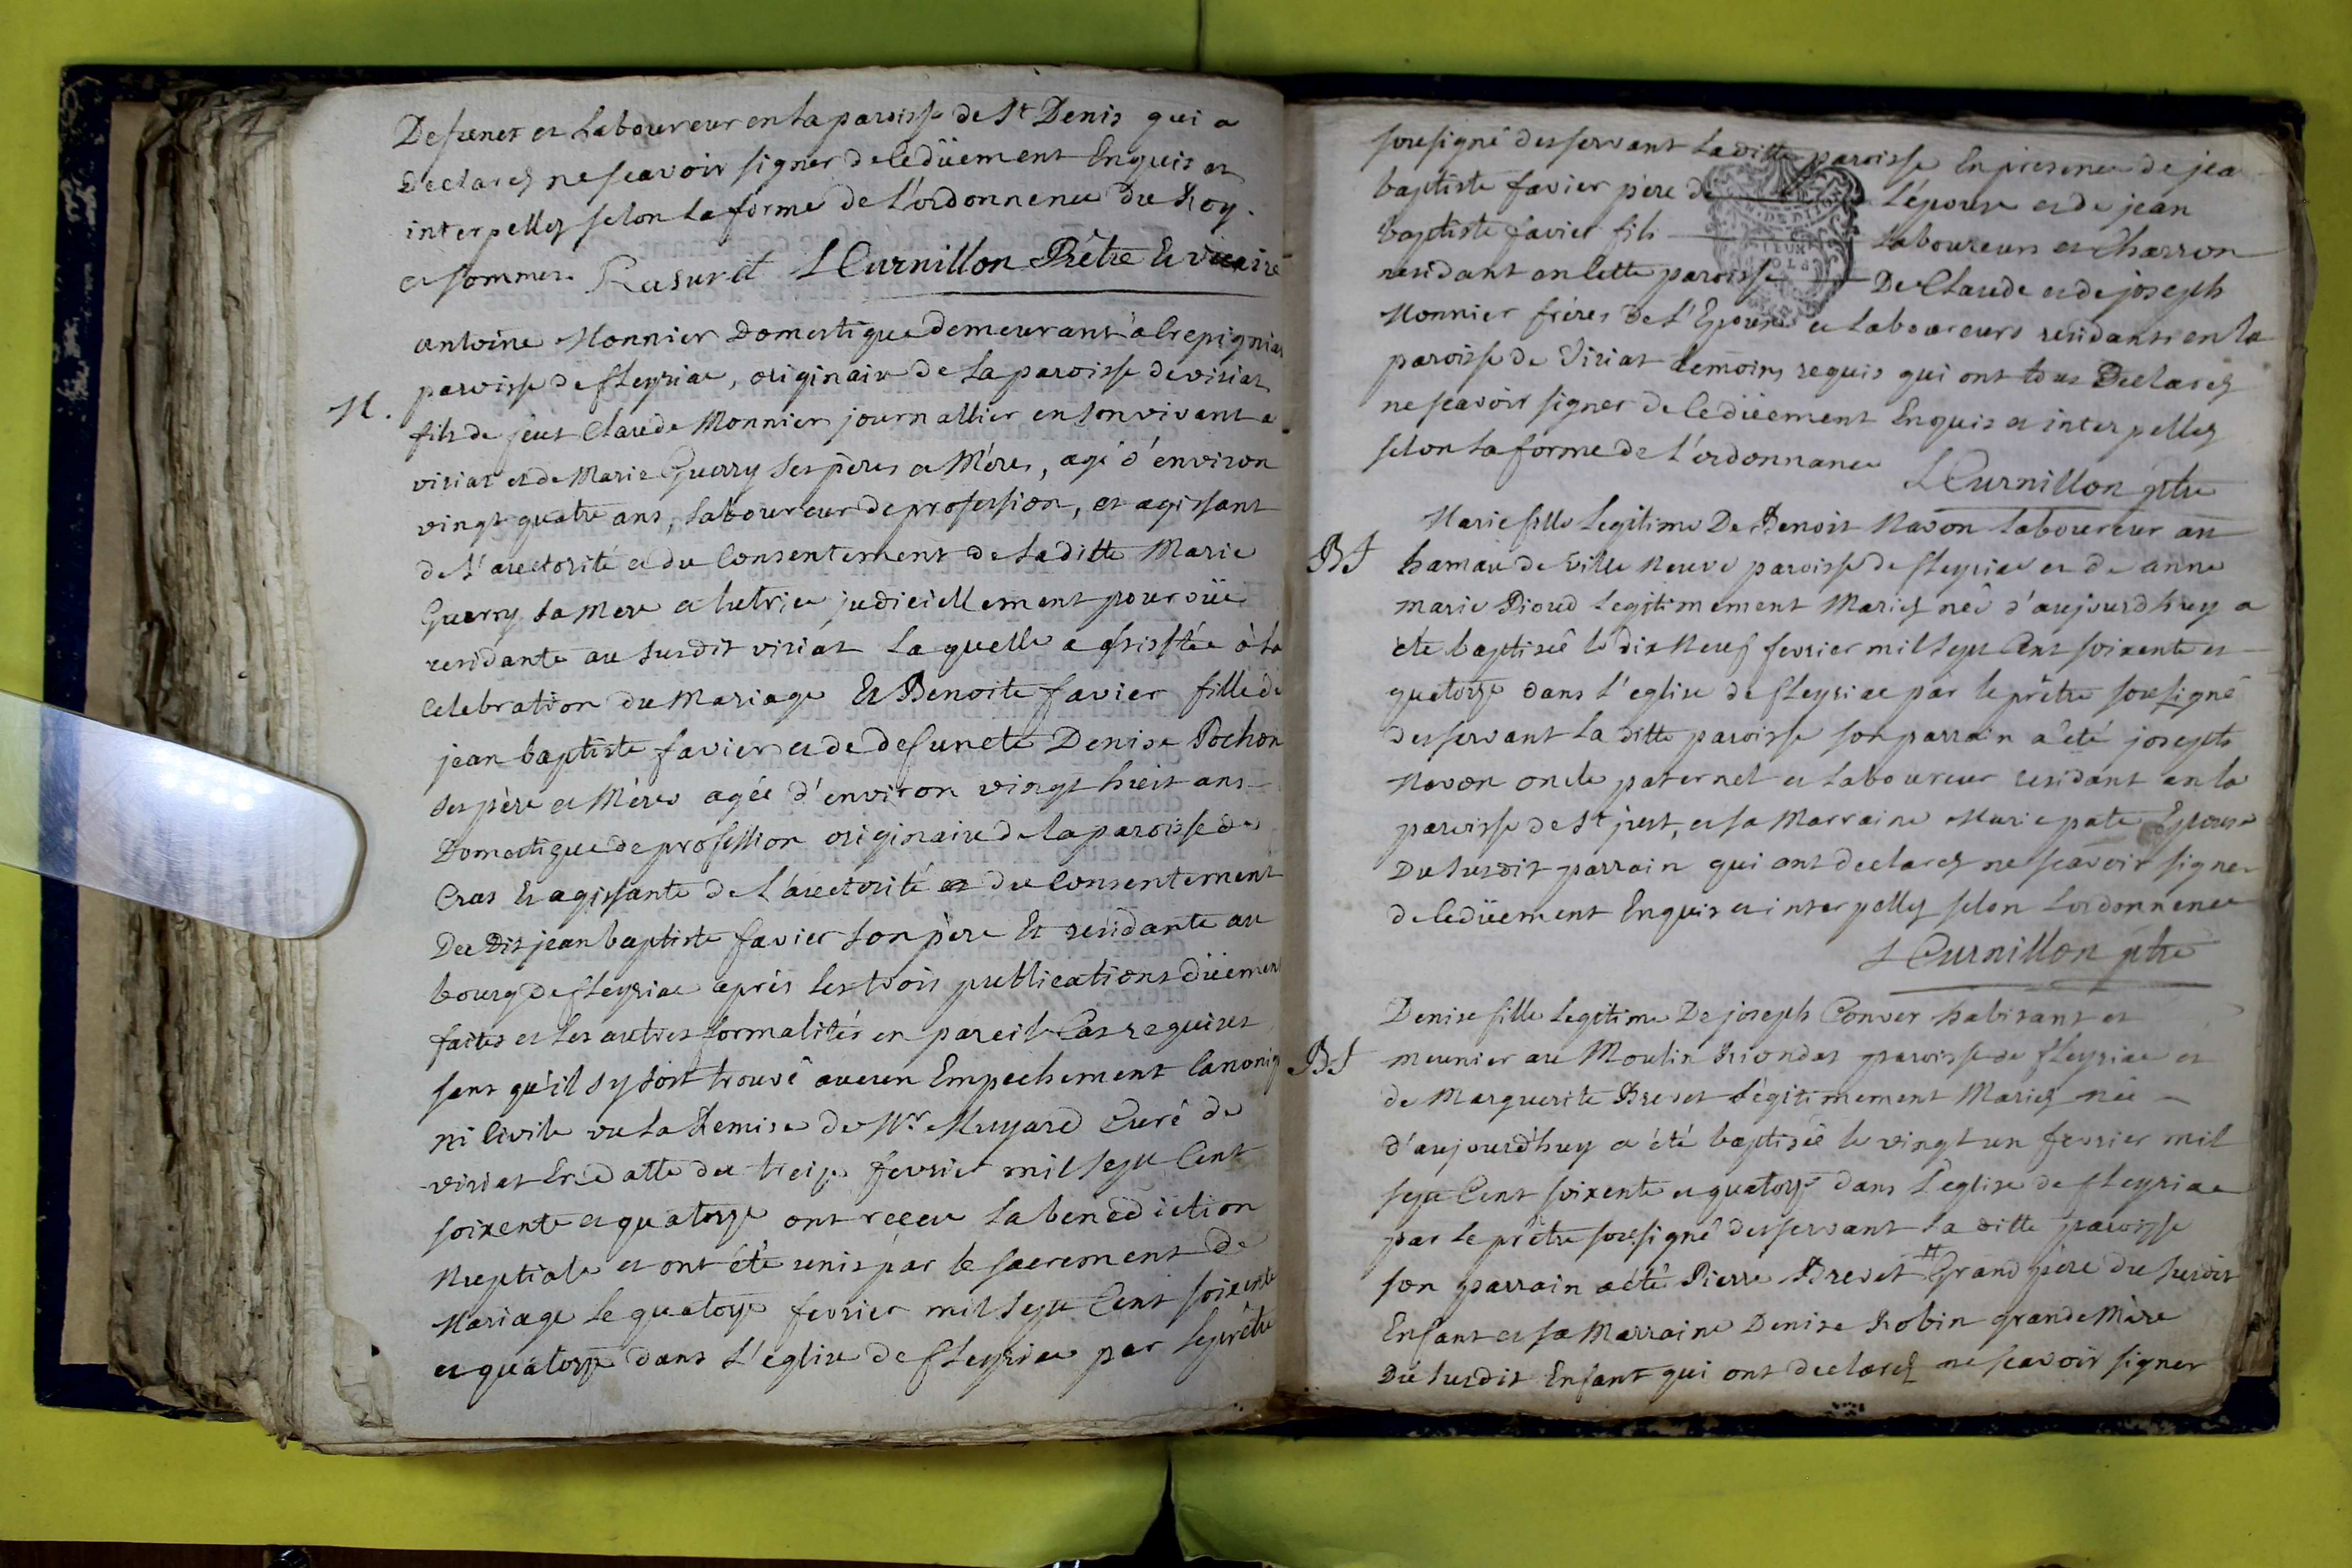 Defunct et Laboureur en la paroisse de St Denis qui a
declarez ne scavoir signer de ce düement Enquis et
interpellez selon la forme de l'ordonnence du Roy.
et sommer. Rasuret L Curnillon Prêtre Et vicaire
antoine Monnier Domestique demeurant à Crepignia
paroisse de fleyriac, originaire de la paroisse de viriat
M.
fils de feut Claude Monnier journallier en son vivant a
viriat et de Marie Guerry ses pères et Mères, agé d'environ
vingt quatre ans, Laboureur de profession, et agissant
de l'auctorité et du Consentement de laditte Marie
Guerry sa mere et tutrice judiciellement pourvüe
residante au susdit viriat Laquelle a assisstée à la
Celebration du Mariage Et Benoite favier fille de
jean baptiste favier et de defuncte Denise Pochon
ses père et Mères agée d'environ vingt hüit ans
Domestique de profession originaire de la paroisse de
Cras Et agissante de L'auctorité et du Consentement
Du Dit jean baptiste favier son père Et residante au
bourg de fleyriac après les trois publications düement
faites et les autres formalités en pareil Cas requises
sans qu'il s'y soit trouvé aucun Empechement Canoniq
ni Civile vu la Remise de Mr Muyard Curé de
viriat En datte du treize fevrier mil sept Cent
soixente et quatorze ont reçeu la benediction
Nuptiale et ont été unis par le sacrement de
Mariage le quatorze fevrier mil sept Cent soixente
et quatorze dans L'eglise de fleyriac par le prêtre
sousigné desservant laditte paroisse En presence de jea
baptiste favier père de L'épouse et de jean
baptiste favier fils Laboureurs et Charron
residant en Cette paroisse De Claude et de joseph
Monnier frères de L'Epoux et Laboureurs residants en la
paroisse de Viriat temoins requis qui ont tous Declarez
ne scavoir signer de ce düement Enquis et interpellez
selon la forme de l'ordonnance L Curnillon ptre
Marie fille Legitime De Benoit Navon Laboureur au
BT hamau de Ville Neuve paroisse de fleyriac et de anne
marie Pioud Legitimement Mariez neé d'aujourdhuy a
été baptiseé le dix Neuf fevrier mil sept Cent soixente et
quatorze dans l'eglise de fleyriac par le prêtre sousigné
desservant la ditte paroisse son parrain a été joseph
Navon oncle paternel et Laboureur residant en la
paroisse de St just, et sa Marraine Marie pate Epouse
Du susdit parrain qui ont declarez ne scavoir signer
de ce düement Enquis et interpellez selon Lordonnence
L Curnillon ptre
Denise fille Legitime De joseph Conver habitant et
BT meunier au Moulin Riondas paroisse de fleyriac et
de Marguerite Brevet Légitimement Mariez née
d'aujourd'huy a été baptisée le vingt un fevrier mil
sept Cent soixente et quatorze dans l'eglise de fleyriac
par le prêtre sousigné desservant la ditte paroisse
son parrain a été Pierre Brevet # Grand père du susdit
Enfant et sa Marraine Denise Robin grande Mère
Du susdit Enfant qui ont declarez ne scavoir signer